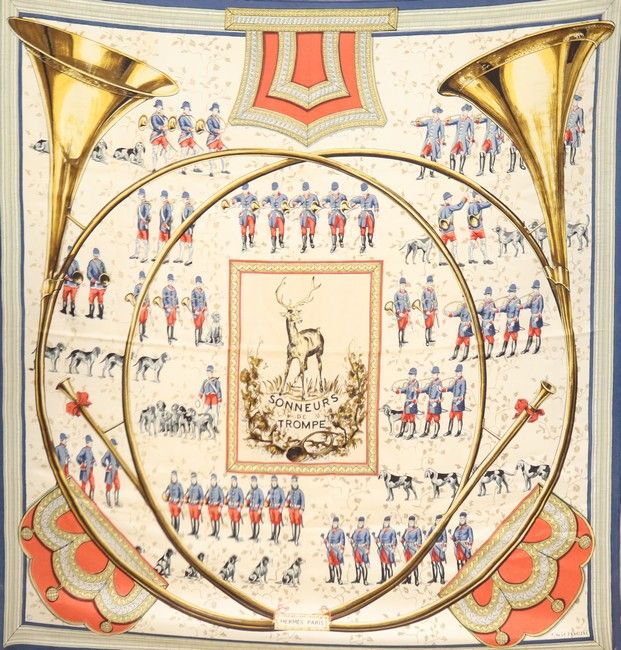 SONNEURS
DE
TROMPE
HERMÈS PARIS